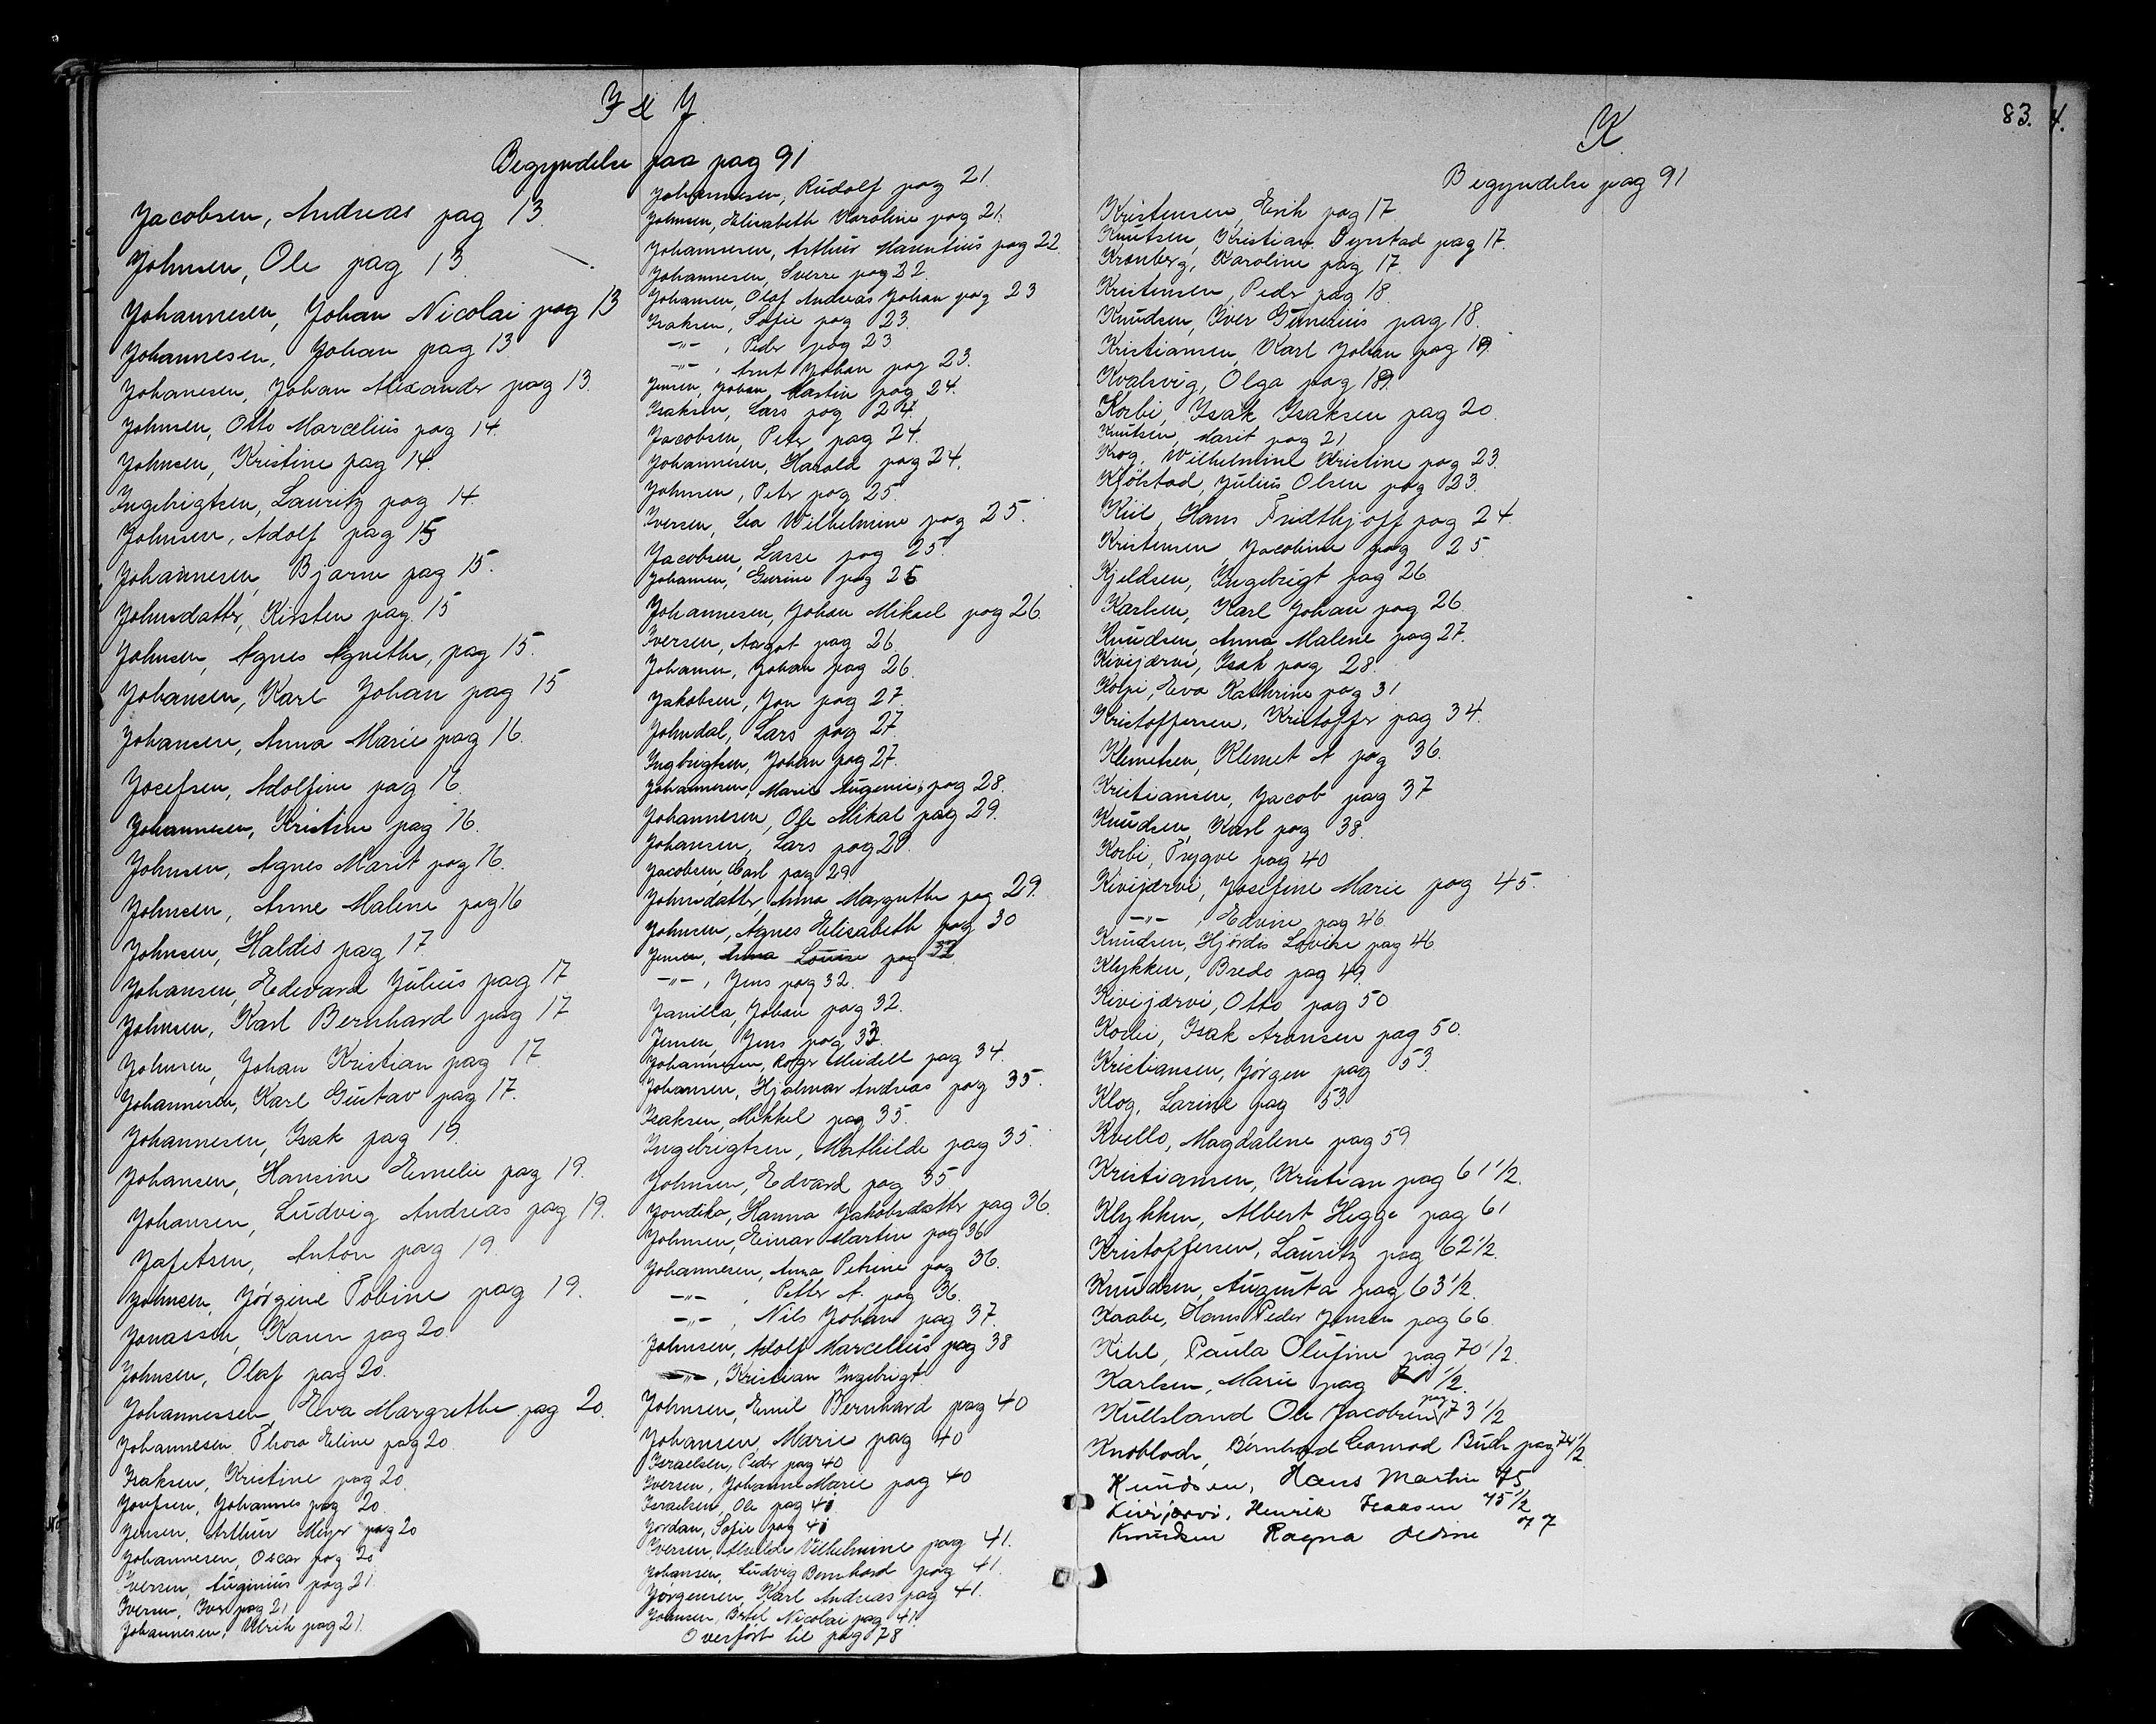 I & J.
Begyndelse paa pag 91
Jacobsen, Andreas pag 13.
Johnsen, Ole pag 13.
Johannesen, Johan Nicolai pag 13
Johannesen, Johan pag 13
Johanesen, Johan Alexander pag 13.
Johnsen, Otto Marcelius pag 14.
Johnsen, Kristine pag 14.
Ingebrigtsen, Lauritz pag 14.
Johnsen, Adolf pag 15
Johannesen, Bjarne pag 15.
Johnsdatter, Kirsten pag. 15
Johnsen, Agnes Agnethe, pag 15.
Johansen, Karl Johan pag 15
Johansen, Anna Marie pag 16.
Josefsen, Adolfine pag 16.
Johannesen, Kristine pag 16.
Johnsen, Agnes Marit pag 16.
Johnsen, Anne Malene pag 16
Johnsen, Haldis pag 17.
Johansen, Edevard Julius pag 17
Johnsen, Karl Bernhard pag 17
Johnsen, Johan Kristian pag 17
Johannesen, Karl Gustav pag 17.
Johannesen, Isak pag 19.
Johansen, Hansine Emelie pag 19.
Johansen, Ludvig Andreas pag 19.
Jafetsen, Anton pag 19.
Johnsen, Jörgine Tobine pag 19.
Jonassen, Karen pag 20.
Johnsen, Olaf pag 20.
Johannessen, Eva Margrethe pag 20.
Johannesen, Thora Eline pag 20
Isaksen, Kristine pag 20.
Josefsen, Johannes pag 20.
Jensen, Arthur Meyer pag 20
Johannesen, Oscar pag 20
Iversen, Auginius pag 21.
Iversen, Iver pag 21
Johannesen, Ulrik pag 21.
Johannesen, Rudolf pag 21.
Johnsen, Elisabeth Karoline pag 21.
Johannesen, Arthur Marentius pag 22.
Johannesen, Sverre pag 22.
Johansen, Olaf Andreas Johan pag 23
Isaksen, Sofie pag 23.
-"- , Peder pag 23
-"- , Arnt Johan pag 23.
Jensen, Johan Martin pag 24.
Isaksen, Lars pag 24.
Jacobsen, Peter pag 24.
Johannesen, Harald pag 24.
Johnsen, Peter pag 25.
Iversen, Lea Wilhelmine pag 25.
Jacobsen, Lasse pag 25.
Johansen, Gurine pag 26
Johannesen, Johan Mikael pag 26.
Iversen, Aagot pag 26
Johansen, Johan pag 26.
Jakobsen, Jon pag 27.
Johndal, Lars pag 27.
Ingbrigtsen, Johan pag 27.
Johannesen, Marie Augenie, pag 28.
Johannesen, Ole Mikal pag 29.
Johansen, Lars pag 29.
Jacobsen, Carl pag 29.
Johnsdatter, Anna Margrethe pag 29.
Johnsen, Agnes Elisabeth pag 30
Jensen, Anna Louise pag 32
-"- , Jens pag 32.
Janilla, Johan pag 32.
Jensen, Jens pag 33.
Johannesen, Roger Meidell pag 34.
Johansen, Hjalmar Andreas pag 35.
Isaksen, Mikkel pag 35.
Ingebrigtsen, Mathilde pag 35.
Johnsen, Edvard pag 35.
Jondika, Hanna Jakobsdatter pag 36.
Johnsen, Einar Martin pag 36
Johannesen, Anna Petrine pag 36.
-"- , Petter A. pag 36.
-"- , Nils Johan pag 37.
Johnsen, Adolf Marcelius pag 38
-"- , Kristian Ingebrigt
Johnsen, Emil Bernhard pag 40
Johansen, Marie pag 40
Israelsen, Peder pag 40
Iversen, Johanne Marie pag 40
Israelsen, Ole pag 41
Jordan, Sofie pag 41
Iversen, Vilhelmine pag 41.
Johansen, Ludvig Bernhard pag 41.
Jørgensen, Karl Andreas pag 41.
Johansen, Bertel Nicolai pag 41.
Overfört til pag 78
83. 4.
K
Begyndelse pag 91
Kristensen, Erik pag 17.
Knutsen, Kristian Dyrstad pag 17.
Kronberg, Karoline pag 17.
Kristensen, Peder pag 18.
Knudsen, Iver Gunerius pag 18.
Kristiansen, Karl Johan pag 19.
Kvalsvig, Olga pag 19.
Korbi, Isak Isaksen pag 20.
Knutsen, Marit pag 21
Krog, Wilhelmine Kristine pag 23.
Kjölstad, Julius Olsen pag 23.
Kiil, Hans Fridthjoff pag 24
Kristensen Jacobine pag 25.
Kjeldsen, Ingebrigt pag 26
Karlsen, Karl Johan pag 26
Knudsen, Anna Malene pag 27.
Kivijærvi, Isak pag 28.
Kolpi, Eva Kathrine pag 31
Kristoffersen, Kristoffer pag 34.
Klemetsen, Klemet A pag 36.
Kristiansen, Jacob pag 37
Knudsen, Karl pag 38.
Korbi, Trygve pag 40
Kivijærvi, Josefine Marie pag 45.
-"- , Edvine pag 46
Knudsen, Hjördis Lovise pag 46
Klykken, Bredo pag 49.
Kivijærvi, Otto pag 50
Korbi, Isak Aronsen pag 50.
Kristiansen, Jörgen pag 53.
Klog, Larine pag 53.
Kvello, Magdalene pag 59
Kristiansen, Kristian pag 61 1/2.
Klykken, Albert Hegge pag 61
Kristoffersen, Lauritz pag 62 1/2.
Knudsen, Augusta pag 63 1/2.
Kaabe, Hans Peder Jensen pag 66.
Kihl, Paula Olufine pag 70 1/2.
Karlsen, Marie pag 1/2.
Kullsland Ole Jacobsen pag 73 1/2
Knoblock, Bernhard Conrad Buch pag 74 1/2
Knudsen, Hans Martin 75
Kivijärvi, Henrik Isaksen 75 1/2
Knudsen Ragna Oldine 77